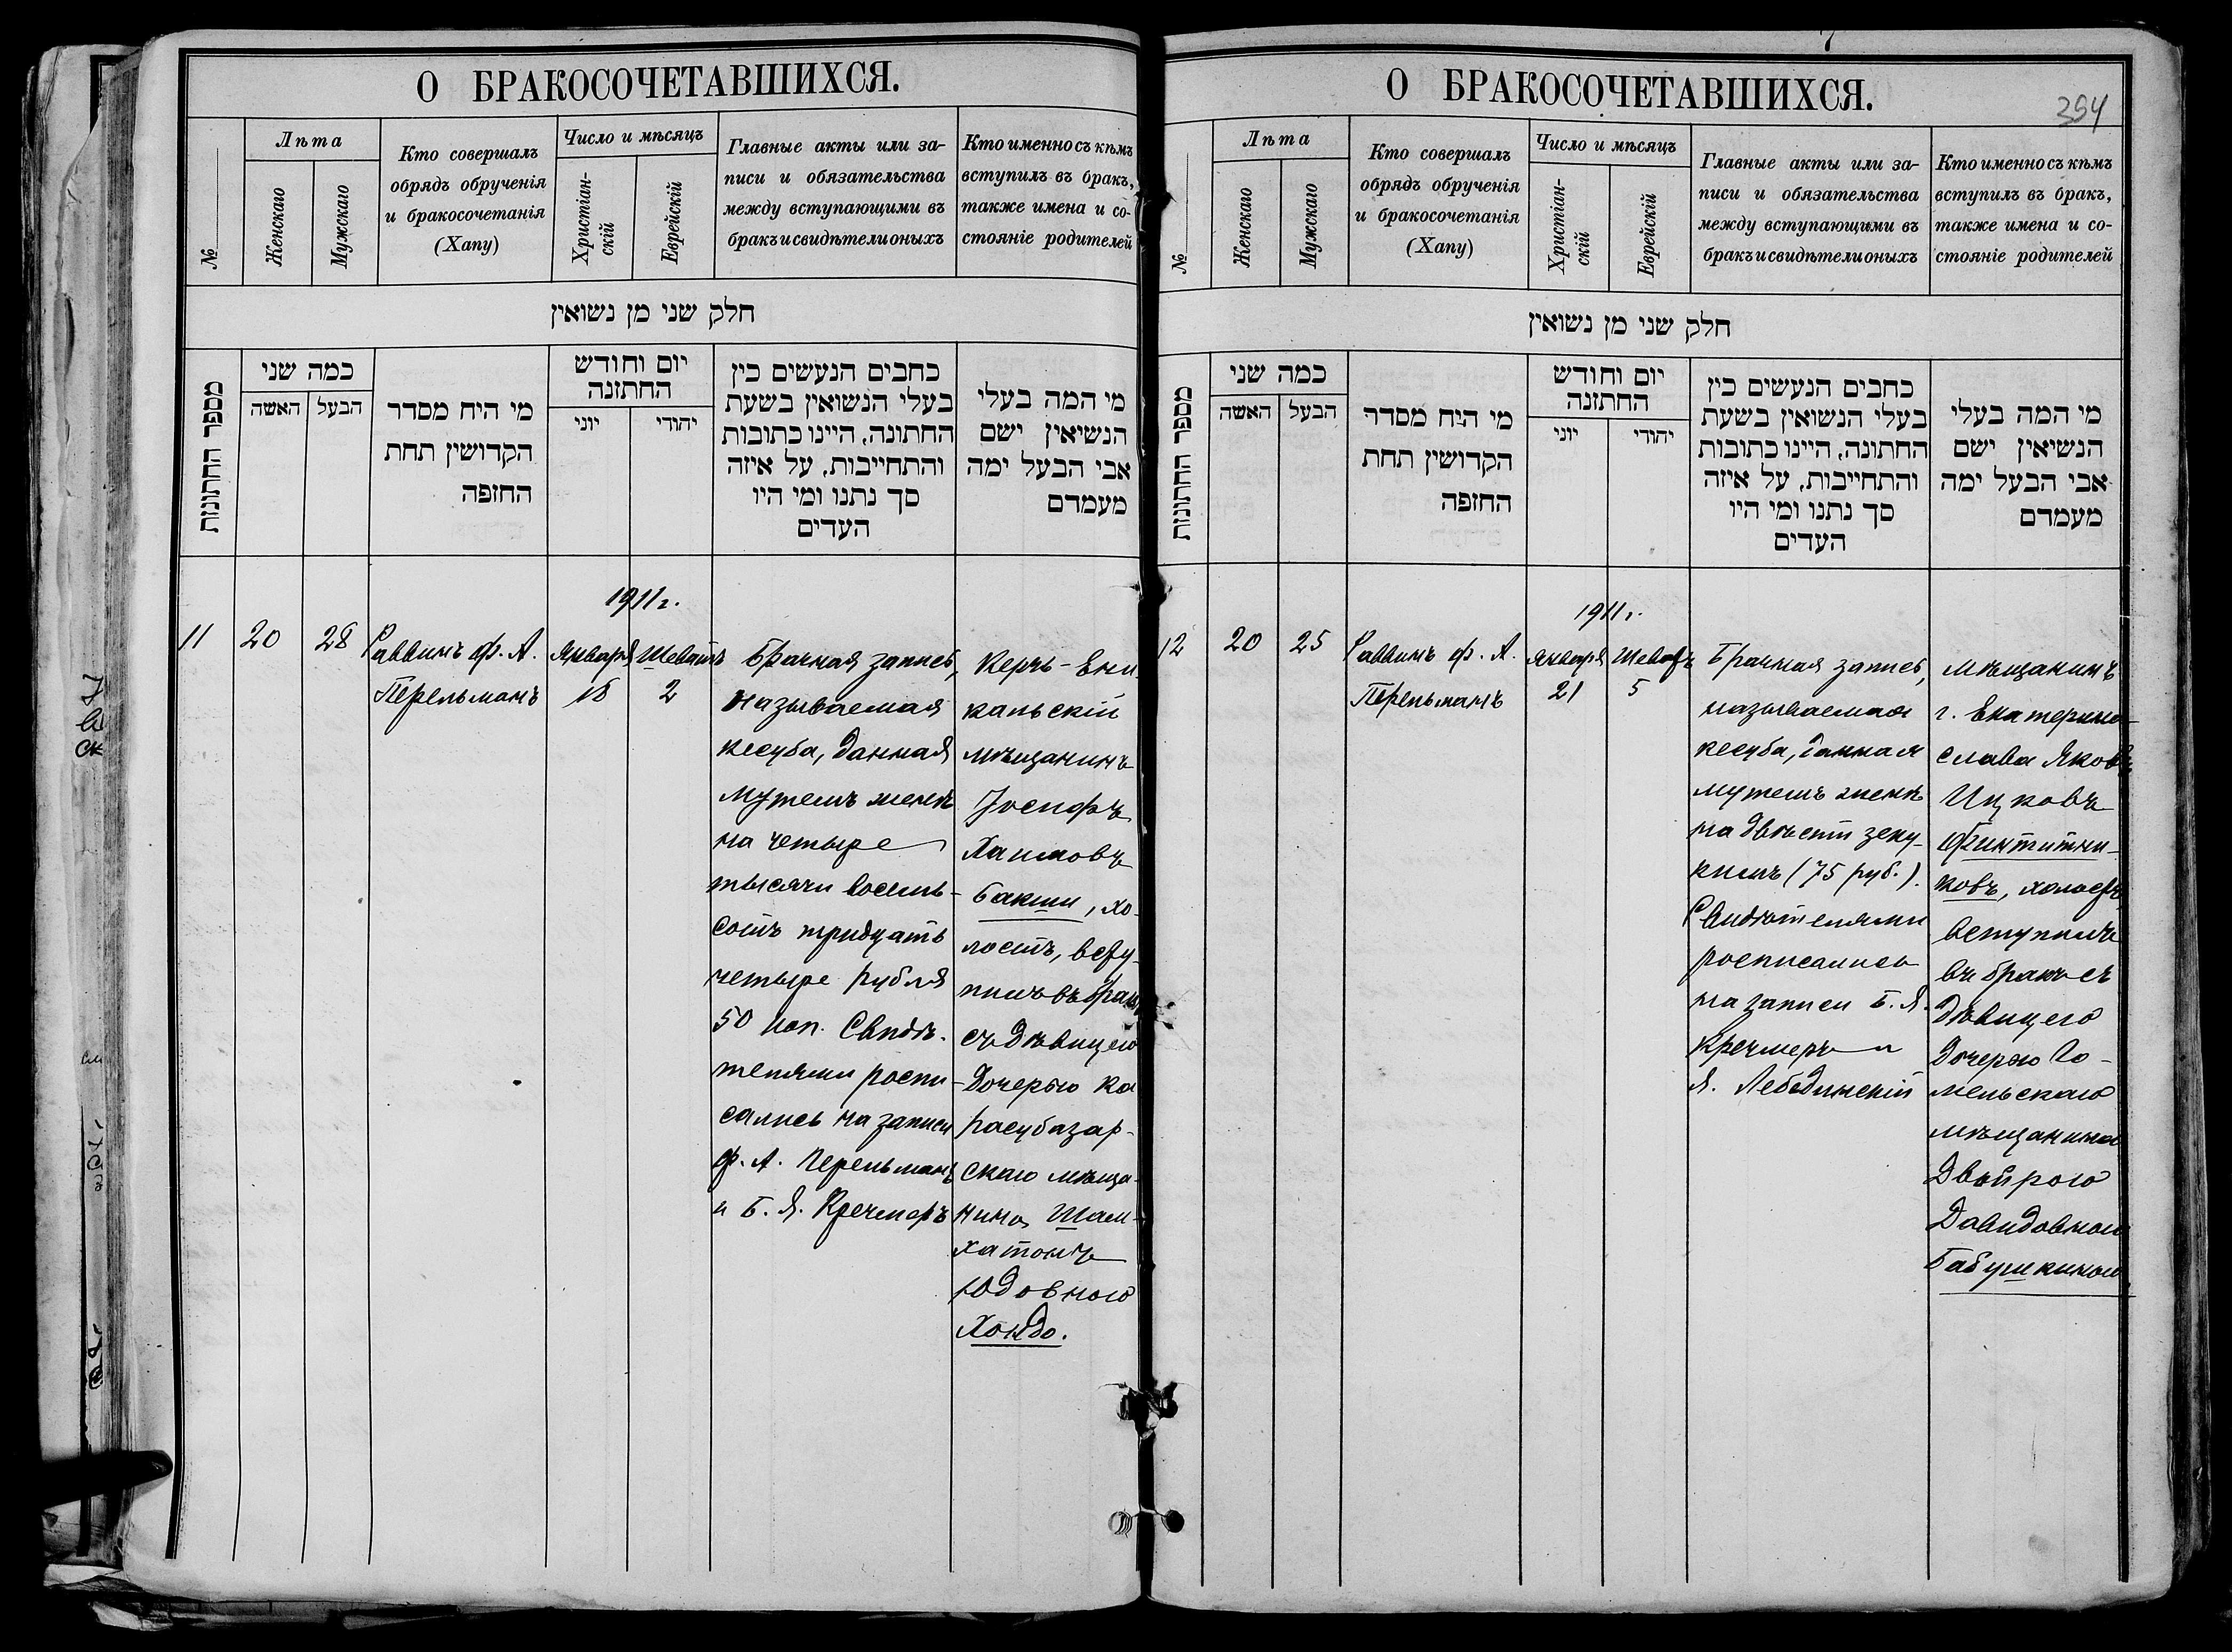 О БРАКОСОЧЕТАВШИХСЯ.
№
Лѣта
Женскаго
Мужскаго
Кто совершалъ
обрядъ обрученія
и бракосочетанія
(Хапу)
Число и мѣсяцъ
Христіан-
скій
Еврейскій
Главные акты или за-
писи и обязательства
между вступающими въ
бракъ и свидѣтели оныхъ
Кто именно съ кѣмъ
вступилъ въ бракъ,
также имена и со-
стояніе родителей
חלק שני מן נשואין
מספר החתונות
כמה שני
האשה
הבעל
מי היח מסדר
הקדושין תחת
החזפה
יום וחודש
החתזנה
יוני
יהודי
כחבים הנעשים כין
בעלי הנשואין בשעת
החתונה, היינו כתובות
והתחייבות, על איזה
סך נתנו ומי היו
העדים
מי המה בעלי
הנשיאין ישם
אבי הבעל ימה
מעמדם
11
20
28
Раввинъ Ф. А.
Перельманъ
1911 г.
Января
18
Шеватъ
2
Брачная запись,
называемая
кесуба, данная
мужемъ женѣ
на четыре
тысячи восемь-
сотъ тридцать
четыре рубля
50 коп. Свидѣ-
телями роспи-
сались на записи
Ф. А. Перельманъ
и Б. Я. Кречмеръ
Керчь-Ени-
кальскій
мѣщанинъ
Іосифъ
Хаимовъ
Бакши, хо-
лостъ, всту-
пилъ въ бракъ
съ дѣвицею
дочерью Ка
расубазар-
скаго мѣща-
нина, Шам-
хатонъ
Юдовною
Хондо.
О БРАКОСОЧЕТАВШИХСЯ.
394
№
Лѣта
Женскаго
Мужскаго
Кто совершалъ
обрядъ обрученія
и бракосочетанія
(Хапу)
Число и мѣсяцъ
Христіан-
скій
Еврейскій
Главные акты или за-
писи и обязательства
между вступающими въ
бракъ и свидѣтели оныхъ
Кто именно съ кѣмъ
вступилъ въ бракъ,
также имена и со-
стояніе родителей
חלק שני מן נשואין
מספר החתונות
כמה שני
האשה
הבעל
מי היח מסדר
הקדושין תחת
החזפה
יום וחודש
החתזנה
יוני
יהודי
כחבים הנעשים כין
בעלי הנשואין בשעת
החתונה, היינו כתובות
והתחייבות, על איזה
סך נתנו ומי היו
העדים
מי המה בעלי
הנשיאין ישם
אבי הבעל ימה
מעמדם
12
20
25
Раввинъ Ф. А.
Перельманъ
1911 г.
Января
21
Шеватъ
5
Брачная запись,
называемая
кесуба, данная
мужемъ женѣ
на двѣсти зеку-
кимъ (75 руб.).
Свидѣтелями
росписались
на записи Б. Я.
Кречмеръ и
Я. Лебединскій
мѣщанинъ
г. Екатерино-
слава Яковъ
Ицковъ
Финтитни-
ковъ, холостъ,
вступилъ
въ бракъ съ
дѣвицею
дочерью Го-
мельскаго
мѣщанина
Двейрою
Давидовною
Бабушкиною.